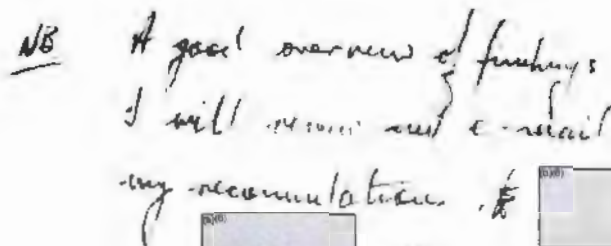 NB A good overview of findings
I will review and e-mail
my recommendation.
(b)(6)
(b)(6)